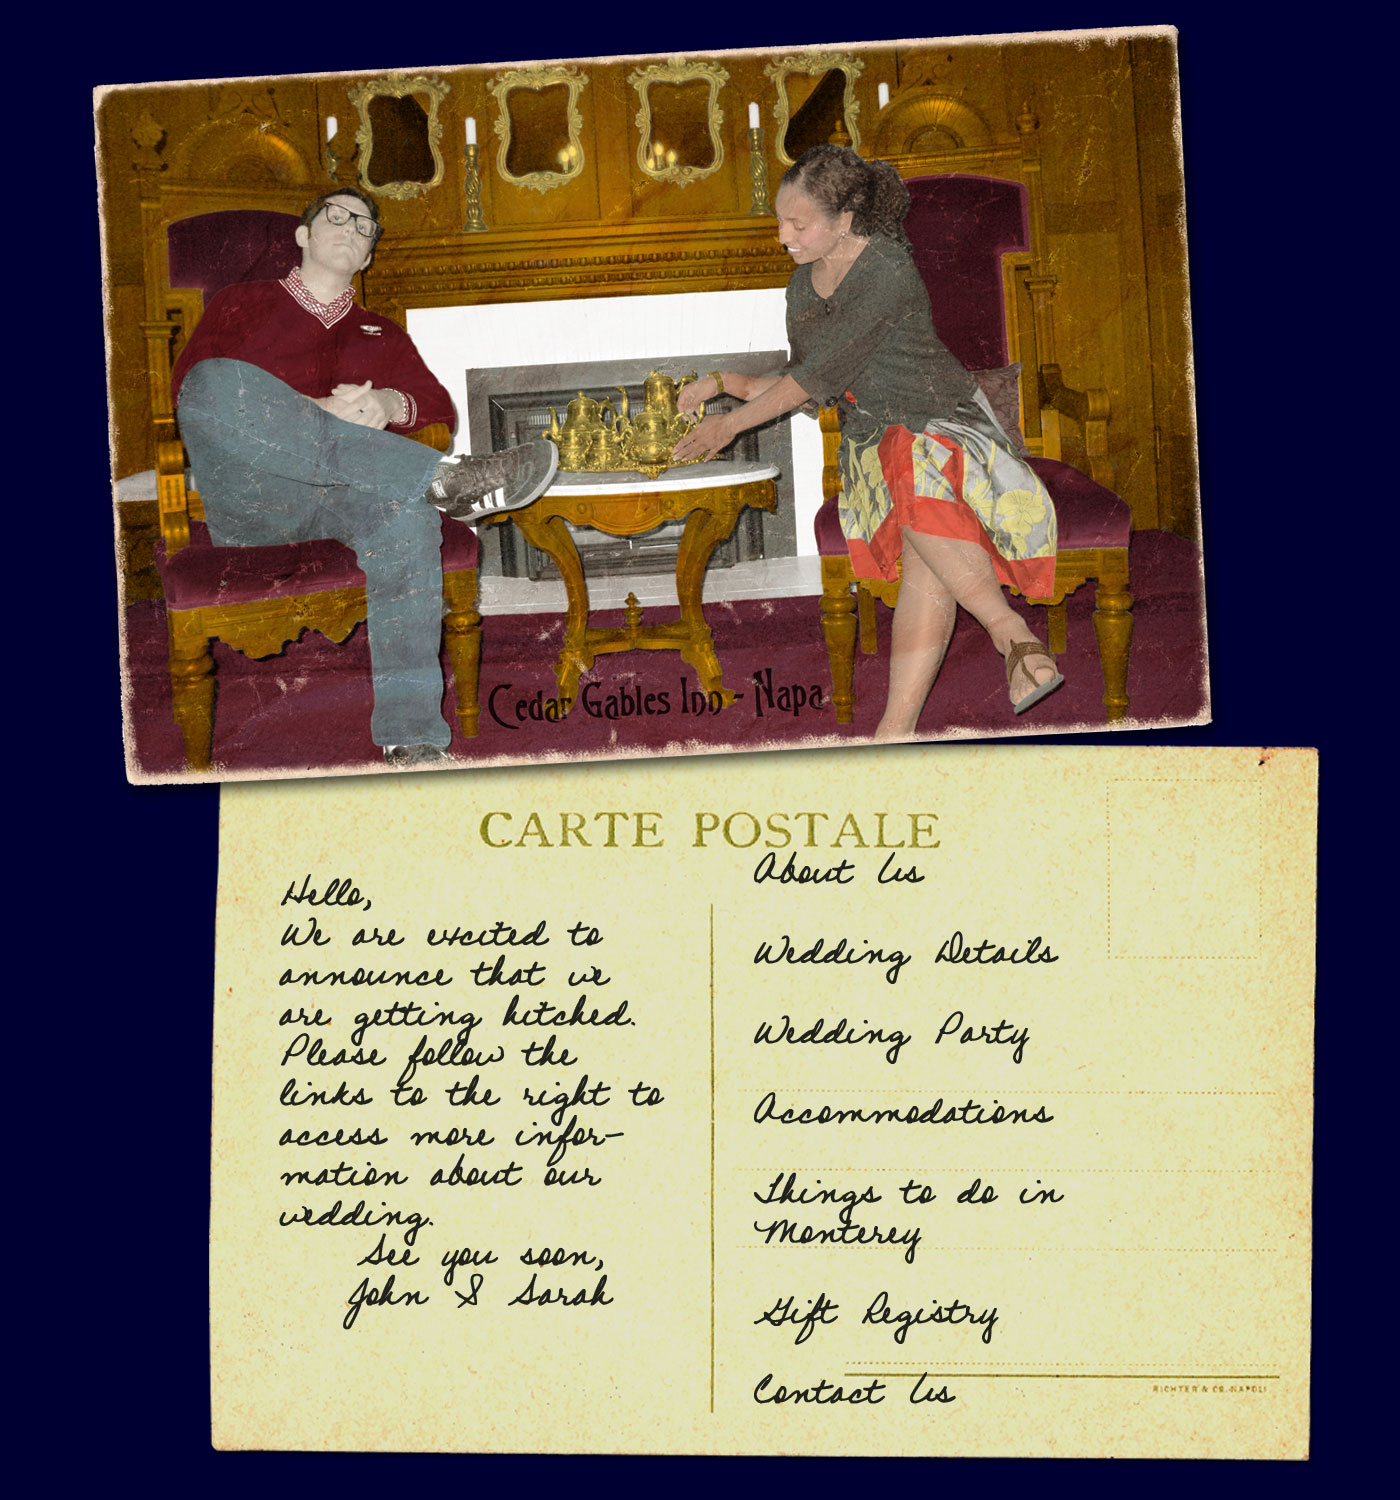 Cedar Gables Inn - Napa
CARTE POSTALE
Hello,
We are excited to
announce that we
are getting hitched.
Please follow the
links to the right to
access more infor-
mation about our
wedding.
See you soon,
John & Sarah
About Us
Wedding Details
Wedding Party
Accommodations
Things to do in
Monterey
Gift Registry
Contact Us
RICHTER & CO. NAPOLI